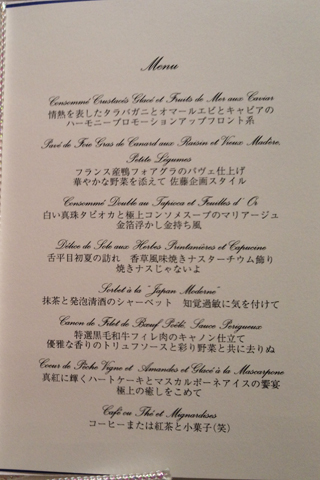 Menu
Consommé Crustacés Glacé et Fruits de Mer aux Caviar
情熱を表したタラバガニとオマールエビとキャビアの
ハーモニープロモーションアップフロント系
Pavé de Foie Gras de Canard aux Raisin et Vieux Madère,
Petite Légumes
フランス産鴨フォアグラのパヴェ仕上げ
華やかな野菜を添えて 佐藤企画スタイル
Consommé Double au Tapioca et Fruilles d' Or
白い真珠タピオカと極上コンソメスープのマリアージュ
金箔浮かし金持ち風
Délice de Sole aux Herbes Printanières et Capucine
舌平目初夏の訪れ 香草風味焼きナスターチウム飾り
焼きナスじゃないよ
Sorbet à la "Japan Moderne"
抹茶と発泡清酒のシャーベット 知覚過敏に気を付けて
Canon de Filet de Bœuf Poêlé, Sauce Perigueux
特選黒毛和牛フィレ肉のキャノン仕立て
優雅な香りのトリュフソースと彩り野菜と共に去りぬ
Coeur de Pêche Vigne et Amandes et Glacé à la Mascarpone
真紅に輝くハートケーキとマスカルポーネアイスの饗宴
極上の癒しをこめて
Café ou Thé et Mignardises
コーヒーまたは紅茶と小菓子(笑)